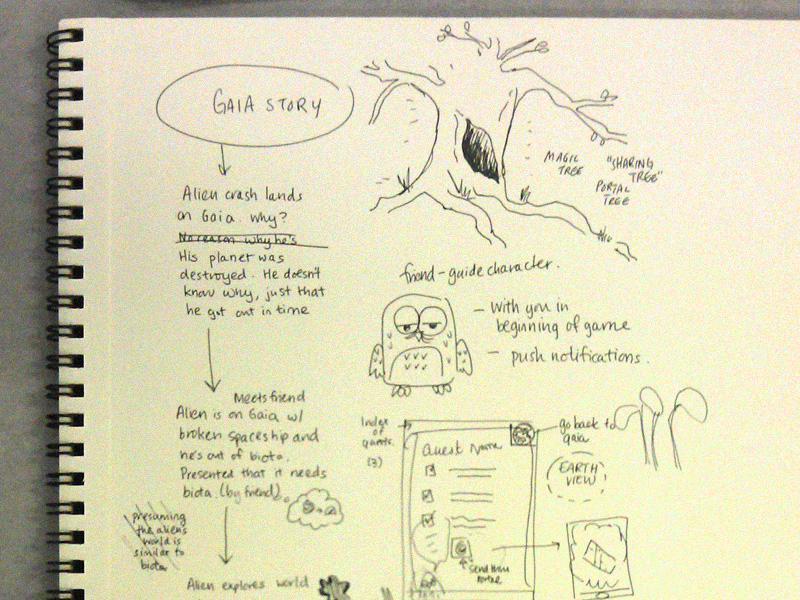 GAIA STORY
Alien crash lands
on Gaia. why?
No reason why he's
His planet was
destroyed. He doesn't
know why, just that
he got out in time
Meets friend
Alien is on Gaia w/
broken spaceship and
he's out of biota.
Presented that it needs
biota. (by friend).
presuming
the alien's
world is
similar to
biota
Alien explores world
MAGIC
TREE
"SHARING
TREE"
PORTAL
TREE
friend-guide character.
- With you in
beginning of game
- push notifications.
Index
of
quests.
(3)
Quest Name
go back to
gaia
EARTH
VIEW
send thru
portal